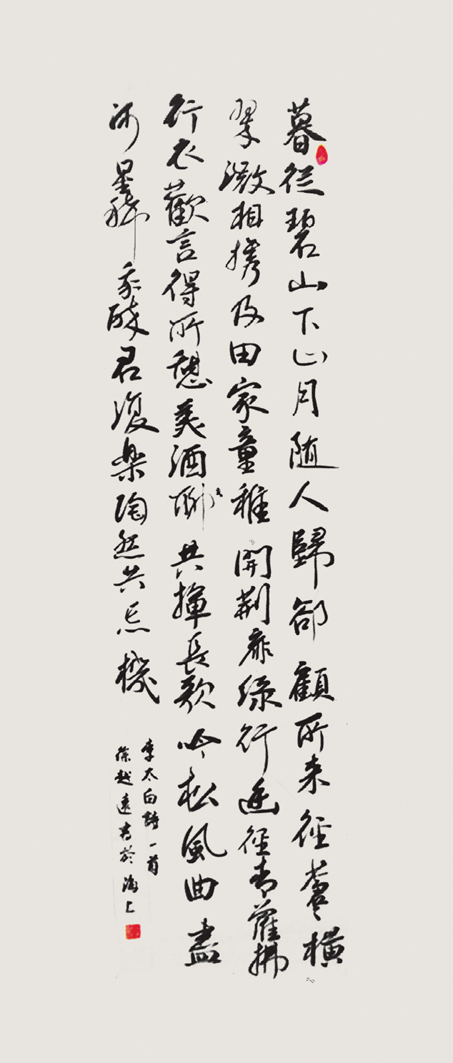 暮從碧山下山月隨人歸卻顧所來徑蒼々橫
翠微相攜及田家童稚開荊扉綠竹徑青蘿拂
行衣歡言得所憩美酒聊共揮長歌吟松風曲盡
河星稀我醉君復樂陶然共忘機
李太白詩一首
徐越遠書於海上